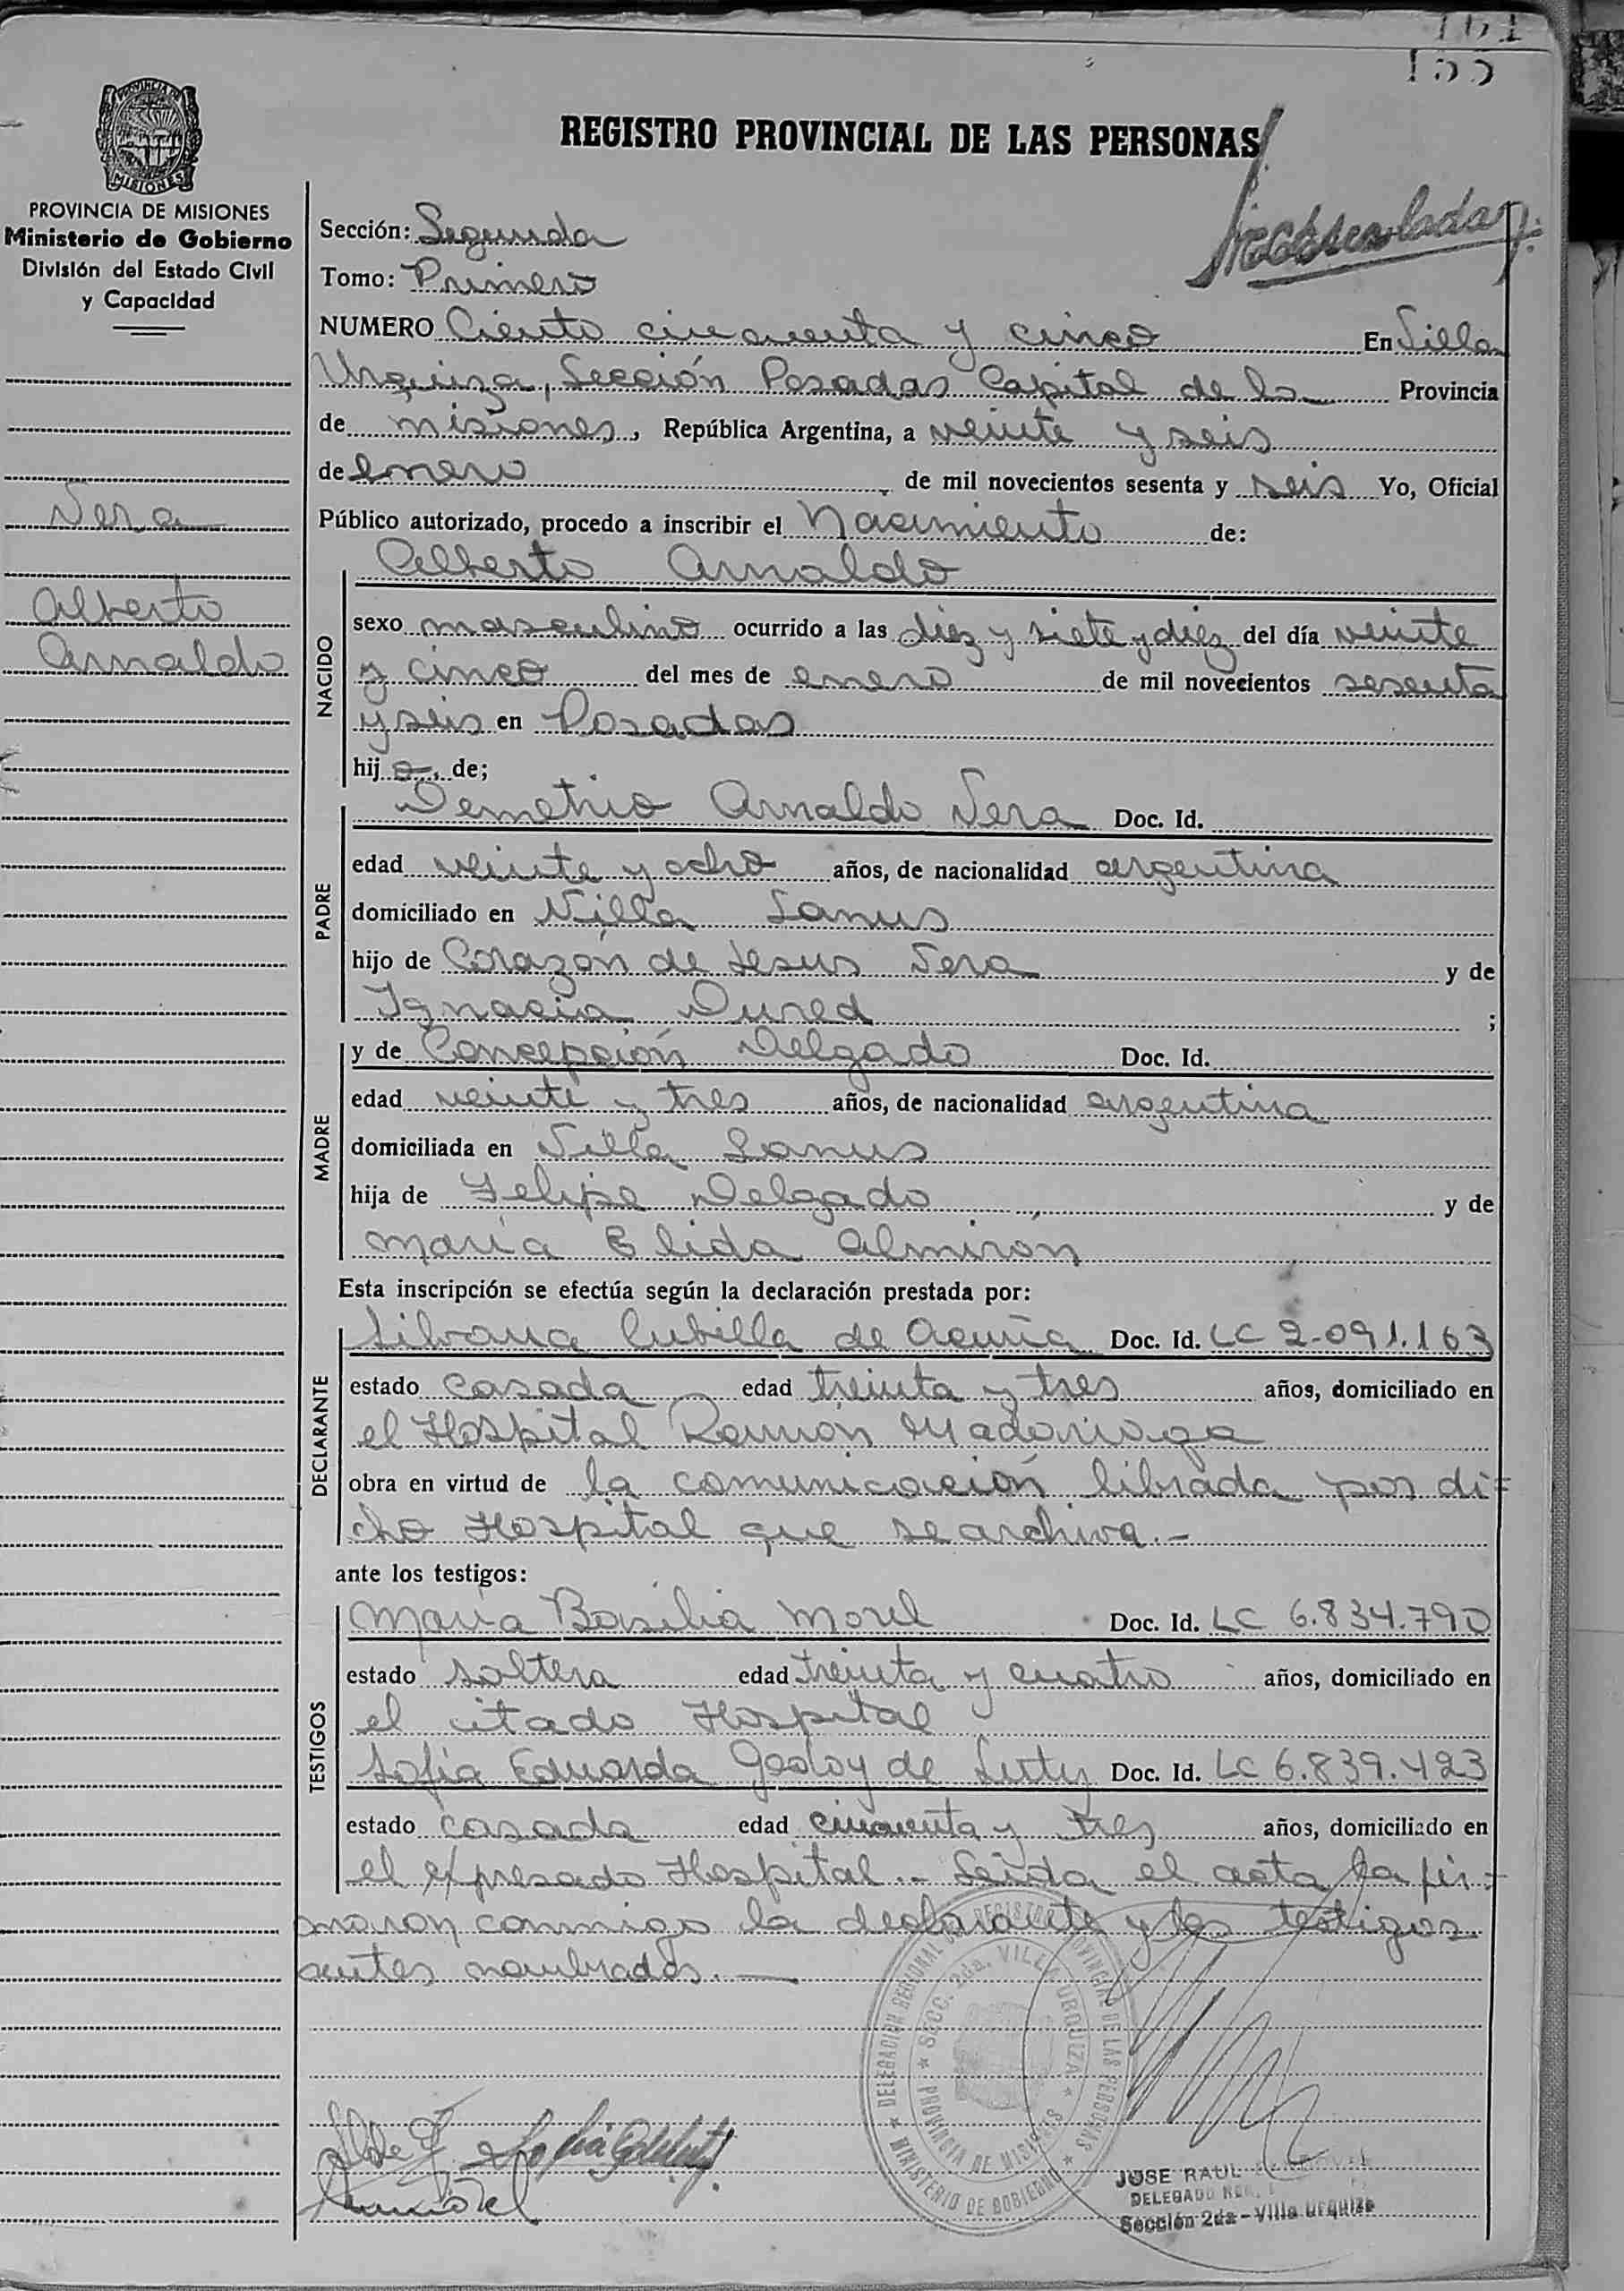 155
REGISTRO PROVINCIAL DE LAS PERSONAS
PROVINCIA DE
MISIONES
PROVINCIA DE MISIONES
Ministerio de Gobierno
División del Estado Civil
y Capacidad
Vera
Alberto
Arnaldo
Sección: Segunda
Tomo: Primero
NUMERO Ciento cincuenta y cinco En Villa
Urquiza, Sección Posadas Capital de la Provincia
de misiones, República Argentina, a veinte y seis
de enero de mil novecientos sesenta y seis Yo, Oficial
Público autorizado, procedo a inscribir el Nacimiento de:
NACIDO
Alberto Arnaldo
sexo masculino ocurrido a las diez y siete y diez del día veinte
y cinco del mes de enero de mil novecientos sesenta
y seis en Posadas
hijo, de;
PADRE
Demetrio Arnaldo Vera Doc. Id.
edad veinte y ocho años, de nacionalidad argentina
domiciliado en Villa Lanus
hijo de Corazón de Jesus Vera y de
Ignacia Dured ;
MADRE
y de Concepción Delgado Doc. Id.
edad veinte y tres años, de nacionalidad argentina
domiciliada en Villa Lanus
hija de Felipe Delgado y de
María Elida Almirón
Esta inscripción se efectúa según la declaración prestada por:
DECLARANTE
Silvana Cubilla de Acuña Doc. Id. LC 2.091.163
estado casada edad treinta y tres años, domiciliado en
el Hospital Ramón Madariaga
obra en virtud de la comunicación librada por di=
cho Hospital que se archiva.-
ante los testigos:
TESTIGOS
María Basilia Morel Doc. Id. LC 6.834.790
estado soltera edad treinta y cuatro años, domiciliado en
el citado Hospital
Sofía Eduarda Godoy de Doc. Id. LC 6.839.423
estado casada edad cincuenta y tres años, domiciliado en
el expresado Hospital.- Leida el acta la fir=
maron conmigo la declarante y los testigos
antes nombrados.
DELEGACION REGIONAL DEL REGISTRO PROVINCIAL DE LAS PERSONAS
MINISTERIO DE GOBIERNO
SECC. 2da. VILLA URQUIZA
PROVINCIA DE MISIONES
JOSE RAUL
DELEGADO
Sección 2da - Villa Urquiza